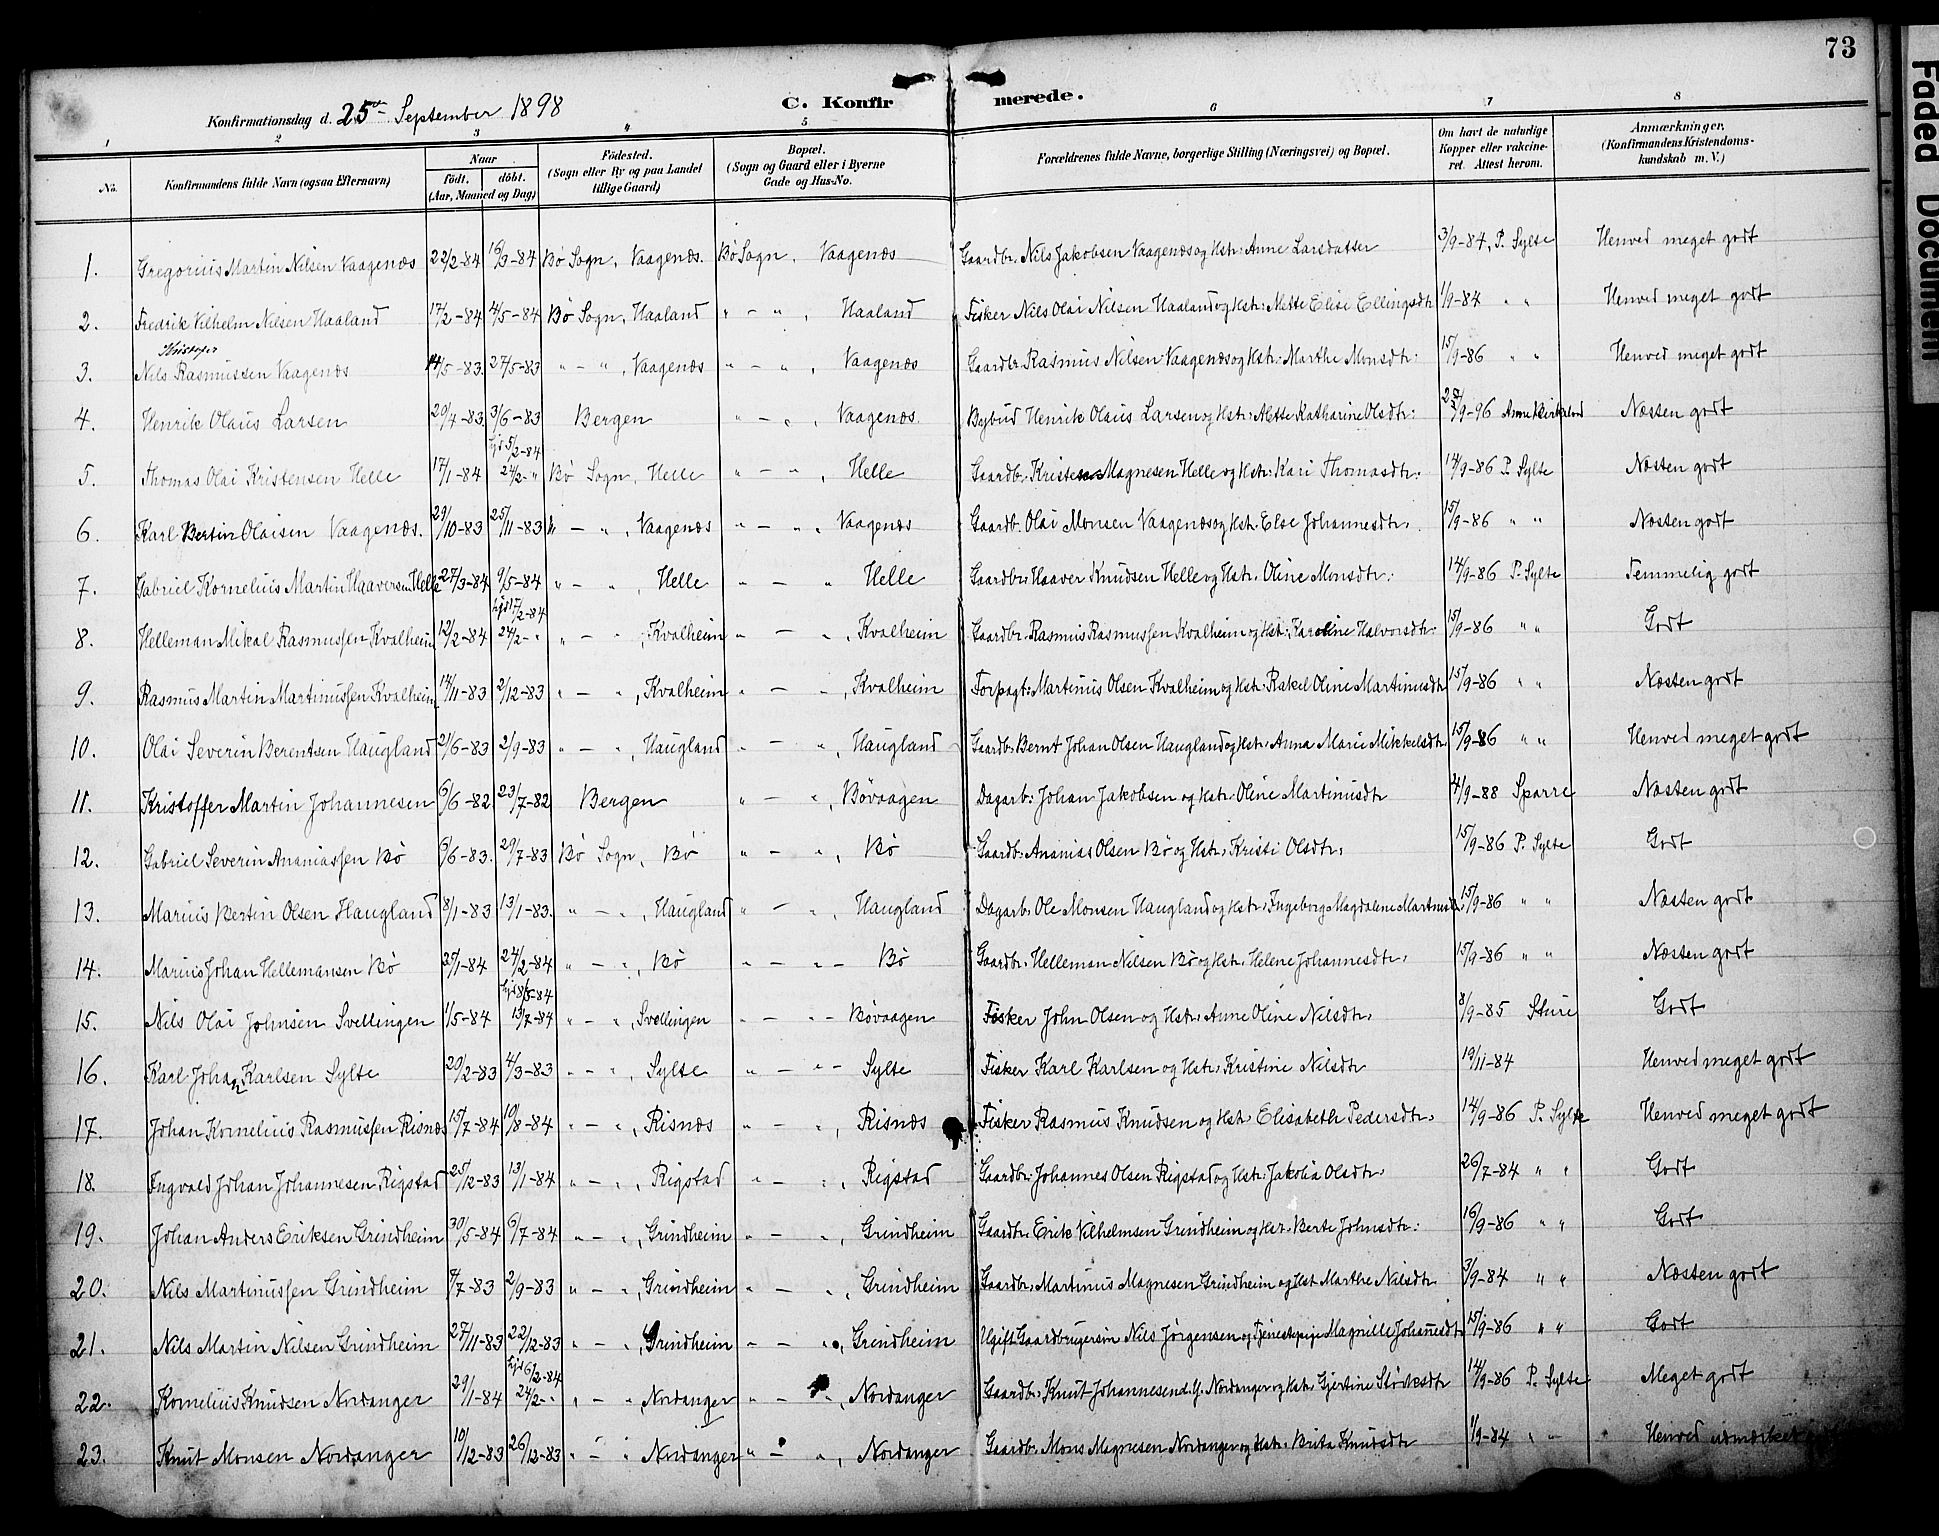 73
Konfirmationsdag d. 25de September 1898 C. Konfirmerede.
1 2 3 " 5 6 7 8
No. Konfirmandens fulde Navn (ogsaa Efternavn) Naar født. døbt. (Aar, Maaned og Dag) Fødested. (Sogn eller By og paa Landet tillige Gaard) Bopæl. (Sogn og Gaard eller i Byerne Gade og Hus-No. Forældrenes fulde Navne, borgerlige Stilling (Næringsvei) og Bopæl. Om havt de naturlige Kopper eller vakcineret. Attest herom. Anmærkninger. (Konfirmandens Kristendomskundskab m. V.)
1. Gregorius Martin Nilsen Vaagenæs 22/2-84 16/3-84 Bø Sogn, Vaagenæs. Bø Sogn, Vaagenæs Gaardbr. Nils Jakobsen Vaagenæs og Hstr: Anne Larsdatter 3/9-84, P. Sylte Henved meget godt
2. Fredrik Vilhelm Nilsen Haaland 17/2-84 4/5-84 Bø Sogn, Haaland " - ", Haaland Fisker Nils Olai Nilsen Haaland og Hstr: Mette Elise Ellingsdtr 1/9-84 " " Henved meget godt
Kristofer
3. Nils Rasmussen Vaagenæs 14/5-83. 27/5-83 " - ", Vaagenæs " - ", Vaagenæs Gaardbr. Rasmus Nilsen Vaagenæs og Hstr: Marthe Monsdtr: 15/9-86 " " Henved meget godt
4. Henrik Olaus Larsen 20/4-83 3/6-83 Bergen " - ", Vaagenæs. Bybud Henrik Olaus Larsen og Hstr: Mette Katharine Olsdtr: 25/9-96 Anne Næsten godt
5. Thomas Olai Kristensen Helle 17/1-84 hjd 5/2-84 24/2-" Bø Sogn, Helle " - ", Helle Gaardbr. Kristen Magnesen Helle og Hstr: Kari Thomasdtr: 14/9-86 P. Sylte Næsten godt
6. Karl Bertin Olaisen Vaagenæs. 29/10-83 25/11-83 " - ", Vaagenæs " - ", Vaagenæs Gaardb. Olai Monsen Vaagenæs og Hstr: Else Johannesdtr. 15/9-86 " " Næsten godt
7. Gabriel Kornelius Martin Haaversen Helle 27/3-84 9/5-84 " - ", Helle " - " Helle Gaardbr: Haaver Knudsen Helle og Hstr. Oline Monsdtr: 14/9-86 P. Sylte Temmelig godt
8. Helleman Mikal Rasmussen Kvalheim 12/2-84 hjd 17/2-84 24/2-" " - ", Kvalheim " - ", Kvalheim Gaardbr. Rasmus Rasmussen Kvalheim og Hst: Karoline Halvorsdtr: 15/9-86 " " Godt
9. Rasmus Martin Martinussen Kvalheim 14/11-83 2/12-83 " - ", Kvalheim " - ", Kvalheim Forpagt: Martinus Olsen Kvalheim og Hstr: Rakel Oline Martinusdtr 15/9-86 " " Næsten godt
10. Olai Severin Berentsen Haugland 21/6-83 2/9-83 " - ", Haugland " - ", Haugland Gaardb. Bernt Johan Olsen Haugland og Hstr: Anna Marie Mikkelsdtr 15/9-86 " " Henved meget godt
11. Kristoffer Martin Johannesen 6/6-82 23/7-82 Bergen " - ", Bøvaagen Dagarb: Johan Jakobsen og Hstr: Oline Martinusdtr 4/9-88 Sparre Næsten godt
12. Gabriel Severin Ananiassen Bø 6/6-83. 29/7-83 Bø Sogn, Bø " - ", Bø Gaardb: Ananias Olsen Bø og Hstr: Kristi Olsdtr: 15/9-86 P. Sylte Godt
13. Marius Bertin Olsen Haugland 8/1-83 13/1-83. " - ", Haugland " - ", Haugland Dagarb: Ole Monsen Haugland og Hstr: Ingeborg Magdalene 15/9-86 " " Næsten godt
14. Marius Johan Hellemansen Bø 31/1-84 24/2-84 " - ", Bø " - " - Bø Gaardbr: Helleman Nilsen Bø og Hstr: Helene Johannesdtr: 15/9-86 " " Næsten godt
15. Nils Olai Johnsen Svellingen 1/5-84 hjd 8/5-84 13/7-84 " - ", Svellingen " - " - Bøvaagen Fisker John Olsen og Hstr: Anne Oline Nilsdtr: 8/9-85 Sture Godt
16. Karl Johan Karlsen Sylte 20/2-83 4/3-83 " - ", Sylte " - " - Sylte Fisker Karl Karlsen og Hstr: Kristine Nilsdtr 19/11-84 Henved meget godt
17. Johan Kornelius Rasmussen Risnæs 15/7-84 10/8-84 " - ", Risnæs " - ", Risnæs Fisker Rasmus Knudsen og Hstr: Elisabeth Pedersdtr. 14/9-86 P. Sylte Henved meget godt
18. Ingvald Johan Johannesen Rigstad 25/12-83 13/1-84 " - ", Rigstad " - ", Rigstad Gaardbr: Johannes Olsen Rigstad og Hstr: Jakobia Olsdtr: 26/7-84 " " Godt
19. Johan Anders Eriksen Grindheim 30/5-84 6/7-84 " - ", Grindheim " - ", Grindheim Gaardbr: Erik Vilhelmsen Grindheim og Hstr. Berte Johnsdtr: 16/9-86 " " Godt
20. Nils Martinussen Grindheim 4/7-83 2/9-83 " - ", Grindheim " - ", Grindheim Gaardbr. Martinus Magnesen Grindheim og Hst Marthe Nilsdtr 3/9-84 " " Næsten godt
21. Nils Martin Nilsen Grindheim 27/11-83 22/12-83 " - ", Grindheim " - ", Grindheim Ugift Gaardbrugersøn Nils Jørgensen og Tjenestepige Magnille Johannesdtr 15/9-86 " " Godt
22. Kornelius Knudsen Nordanger 29/1-84 hjd 6/2-84 24/2-" " - ", Nordanger " - ", Nordanger Gaardbr: Knut Johannesen d. y. Nordanger og Hstr: Gjertine 14/9-86 P. Sylte Meget godt
23. Knut Monsen Nordanger 10/12-83 26/12-83 " - " Nordanger " - ", Nordanger Gaardbr. Mons Magnesen Nordanger og Hstr: Brita Knudsdtr 1/9-84 " " Henved udmærket
Faded Document